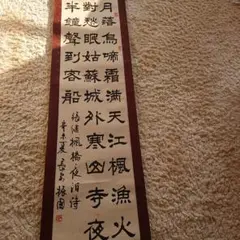 月落烏啼霜滿天江楓漁火
對愁眠姑蘇城外寒山寺夜
半鐘聲到客船
張繼楓橋夜泊詩
辛未夏